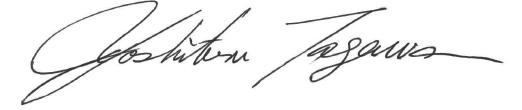 Yoshiteru Tagawa